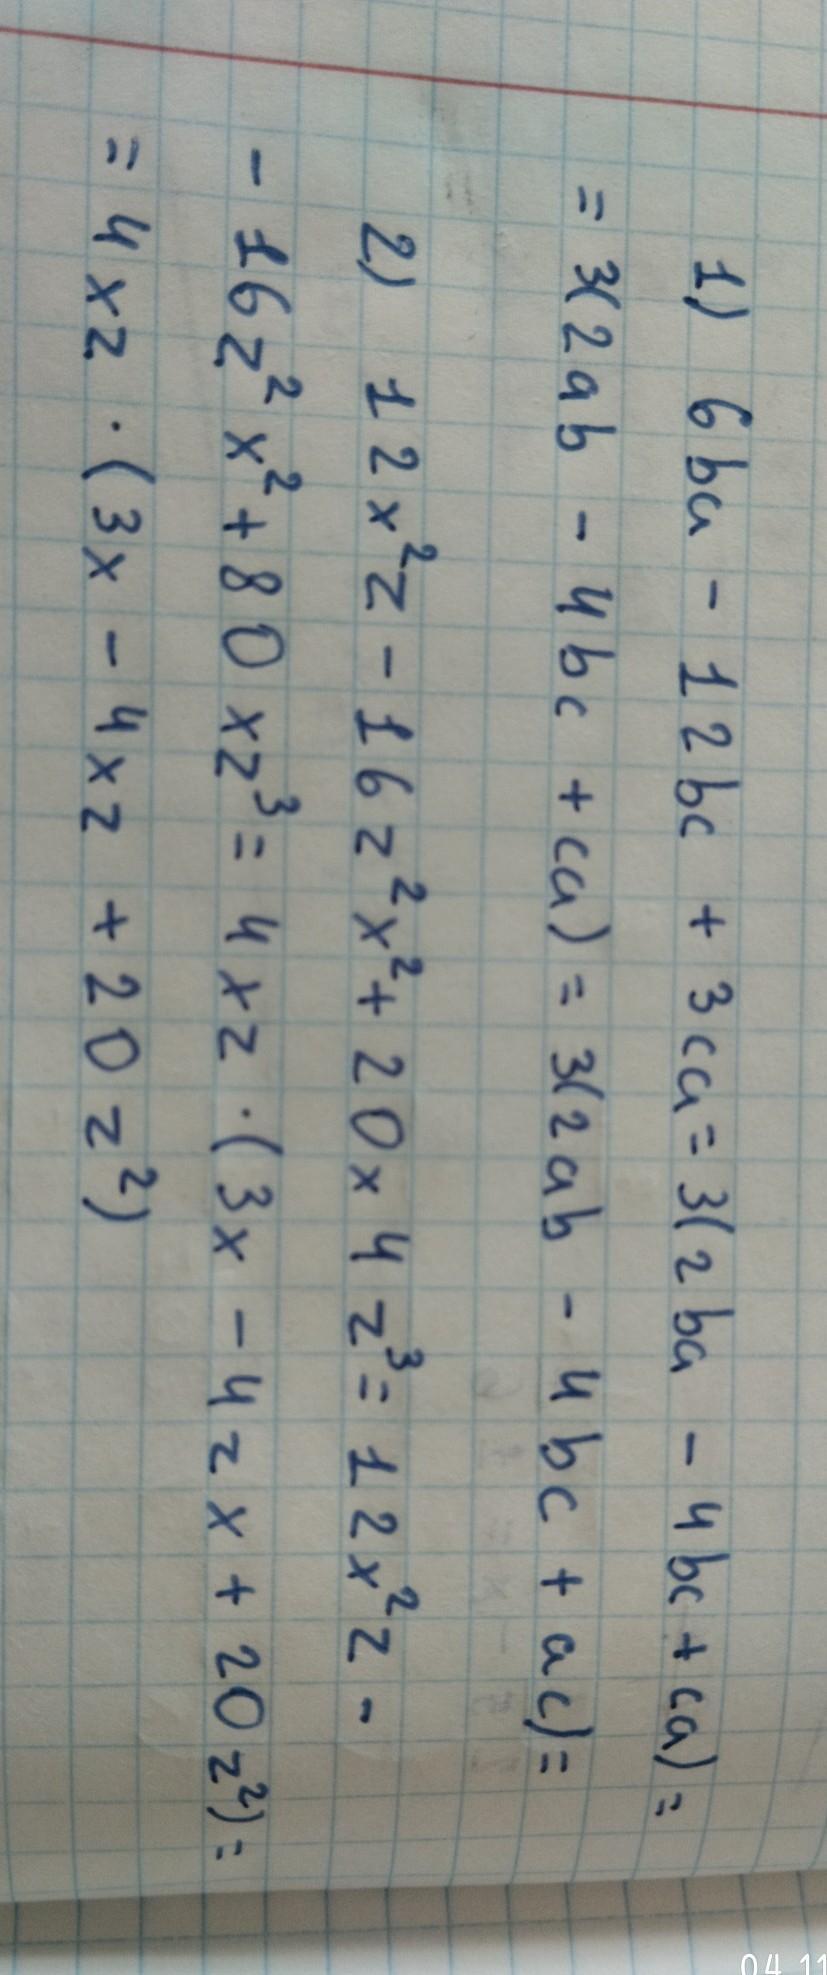 1) 6ba - 12bc + 3ca = 3(2ba - 4bc + ca) =
= 3(2ab - 4bc + ca) = 3(2ab - 4bc + ac) =
2) 12x²z - 16z²x² + 20x4z³ = 12x²z -
- 16z²x² + 80xz³ = 4xz · (3x - 4zx + 20z²) =
= 4xz · (3x - 4xz + 20z²)
04 11